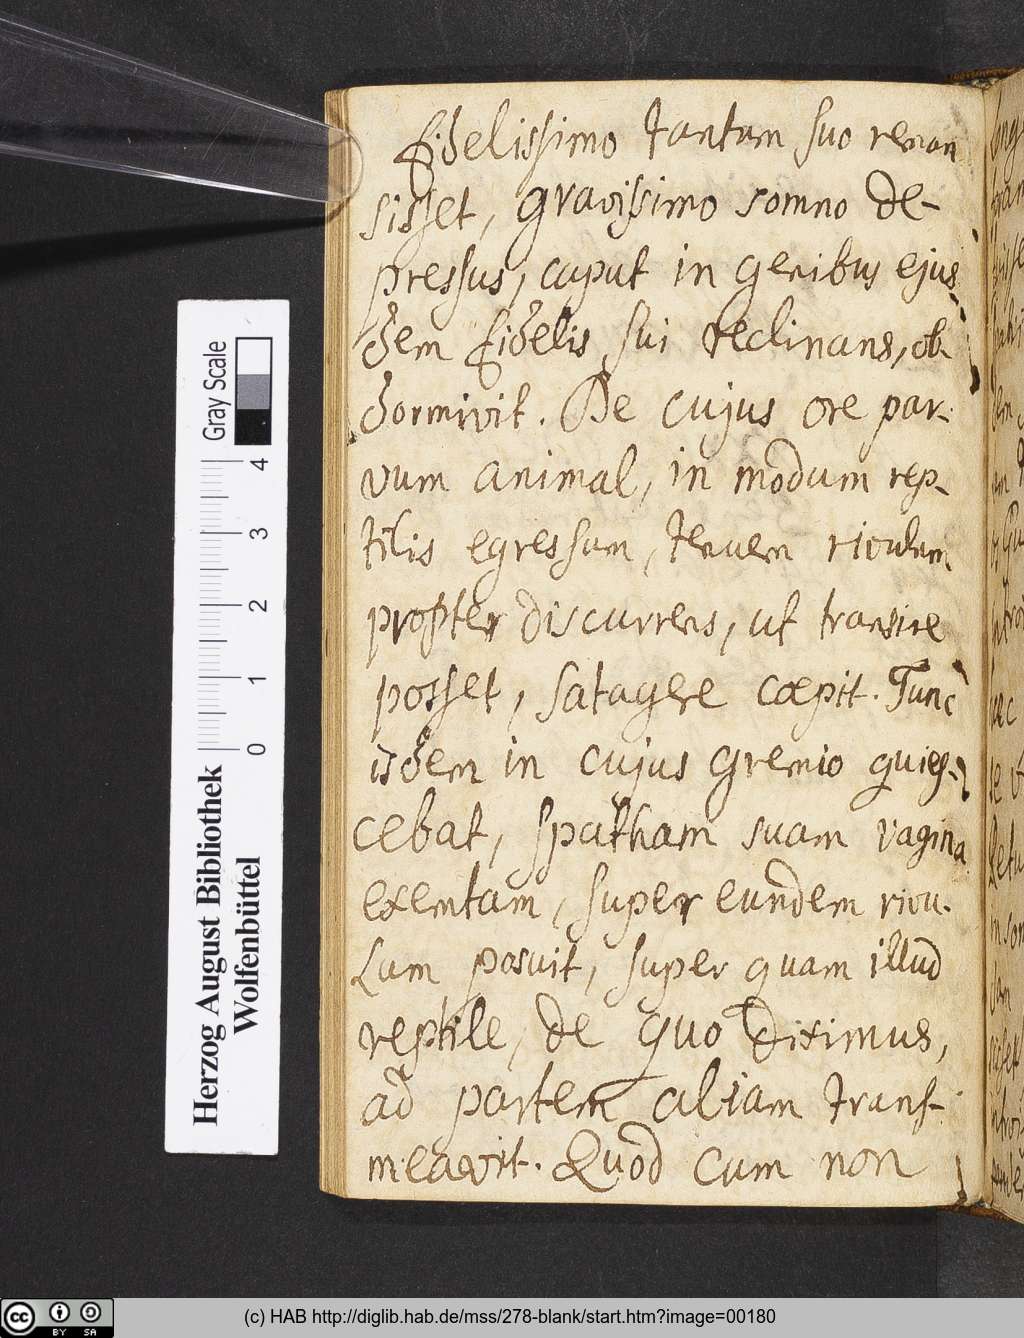 fidelissimo tantum suo reman
sisset, gravissimo somno de-
pressus, caput in genibus ejus
dem fidelis sui reclinans, ob-
dormivit. De cujus ore par-
vum animal, in modum rep-
tilis egressum, tenuem rivulum
propter discurrens, ut transire
posset, satagere cœpit. Tunc
isdem in cujus gremio quies-
cebat, spatham suam vagina
exemtam, super eundem rivu-
lum posuit, super quam illud
reptile, de quo diximus,
ad partem aliam trans-
meavit. Quod cum non
Gray Scale
4
3
2
1
0
Herzog August Bibliothek
Wolfenbüttel
cc BY SA
(c) HAB http://diglib.hab.de/mss/278-blank/start.htm?image=00180